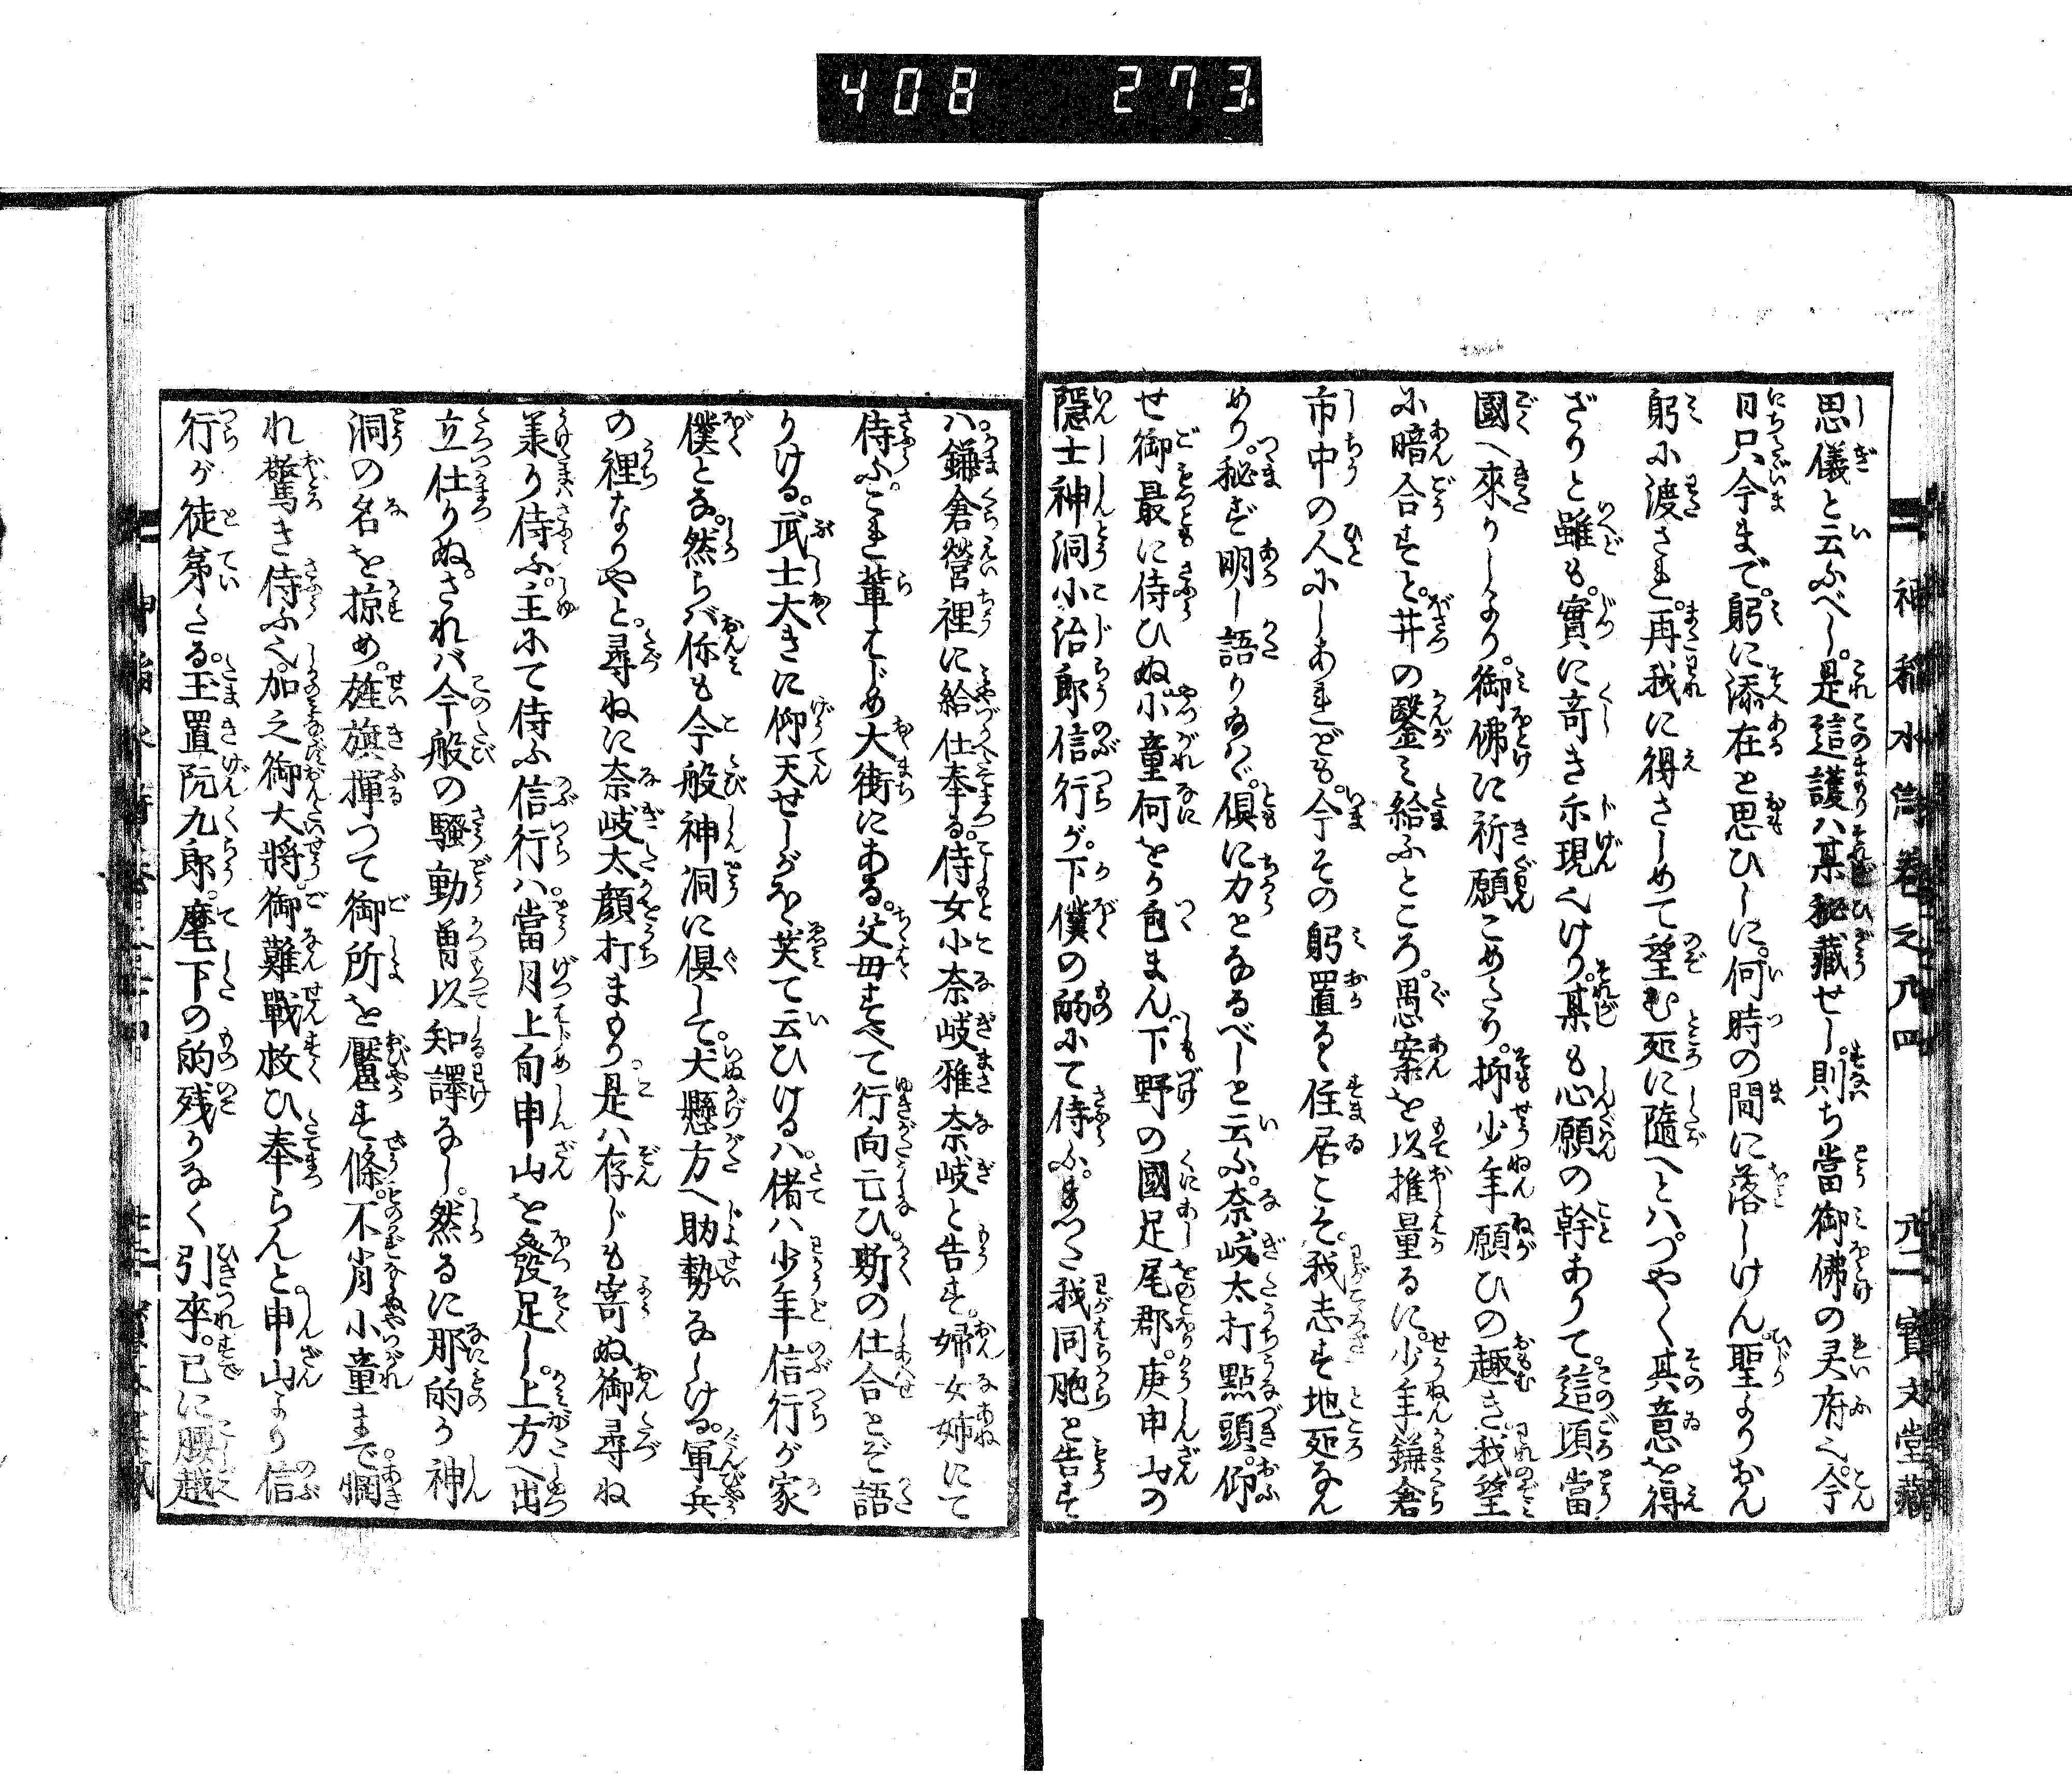 408 273
神稲水滸傳卷之
寶文堂藏
思儀と云ふべし。是這護ハ某秘藏せし。則ち當御佛の灵府へ。今
日只今まで。躬に添在と思ひしに。何時の間に落しけん聖よりおん
躬に渡され。再我に得さしめて望む処に隨へとハ。つや〳〵其意を得
ざりと雖も。實に奇き示現へけり。某も心願の幹ありて。這項當
國へ來りしより。御佛に祈願こめたり。抑少年願ひの趣き。我望
に暗合すと。井の鑿ミ給ふところ。愚案を以推量るに。少年鎌倉
市中の人にしあれども。今その躬置く住居こそ。我志す地処なん
めり。秘ず明し語りなバ。倶に力となるべしと云ふ。奈岐太打點頭。仰
せ御最に侍ひぬ。小童何をか色まん。下野の國足尾郡。庚申山の
隱士神洞小治郎信行が。下僕の的にて侍ふ。まつた我同胞と告す
ハ。鎌倉營裡に給仕奉る。侍女小奈岐雅奈岐と告す。婦女姉にて
侍ふ。これ輩はじめ大街にある。父母すべて行向云ひ斯の仕合とぞ語
りける。武士大きに仰天せしがほゝ笑て云ひけるハ。偖ハ少年信行が家
僕とな。然らバ你も今般神洞に倶して。犬懸方へ助勢なしける。軍兵
の裡なりやと。尋ねに奈岐太顔打まもり。是ハ存じも寄ぬ御尋ね
羕り侍ふ。主にて侍ふ信行ハ。當月上旬申山を發足し。上方へ出
立仕りぬ。されバ今般の騷動曽以知譯なし。然るに那的か神
洞の名を掠め。旌旗揮つて御所を魘す條。不肖小童まで惘
れ驚き侍ふへ。加之御大將御難戰救ひ奉らんと。申山より信
行が徒弟たる。玉置阮九郎。麾下の的残りなく引卒。已に腰越